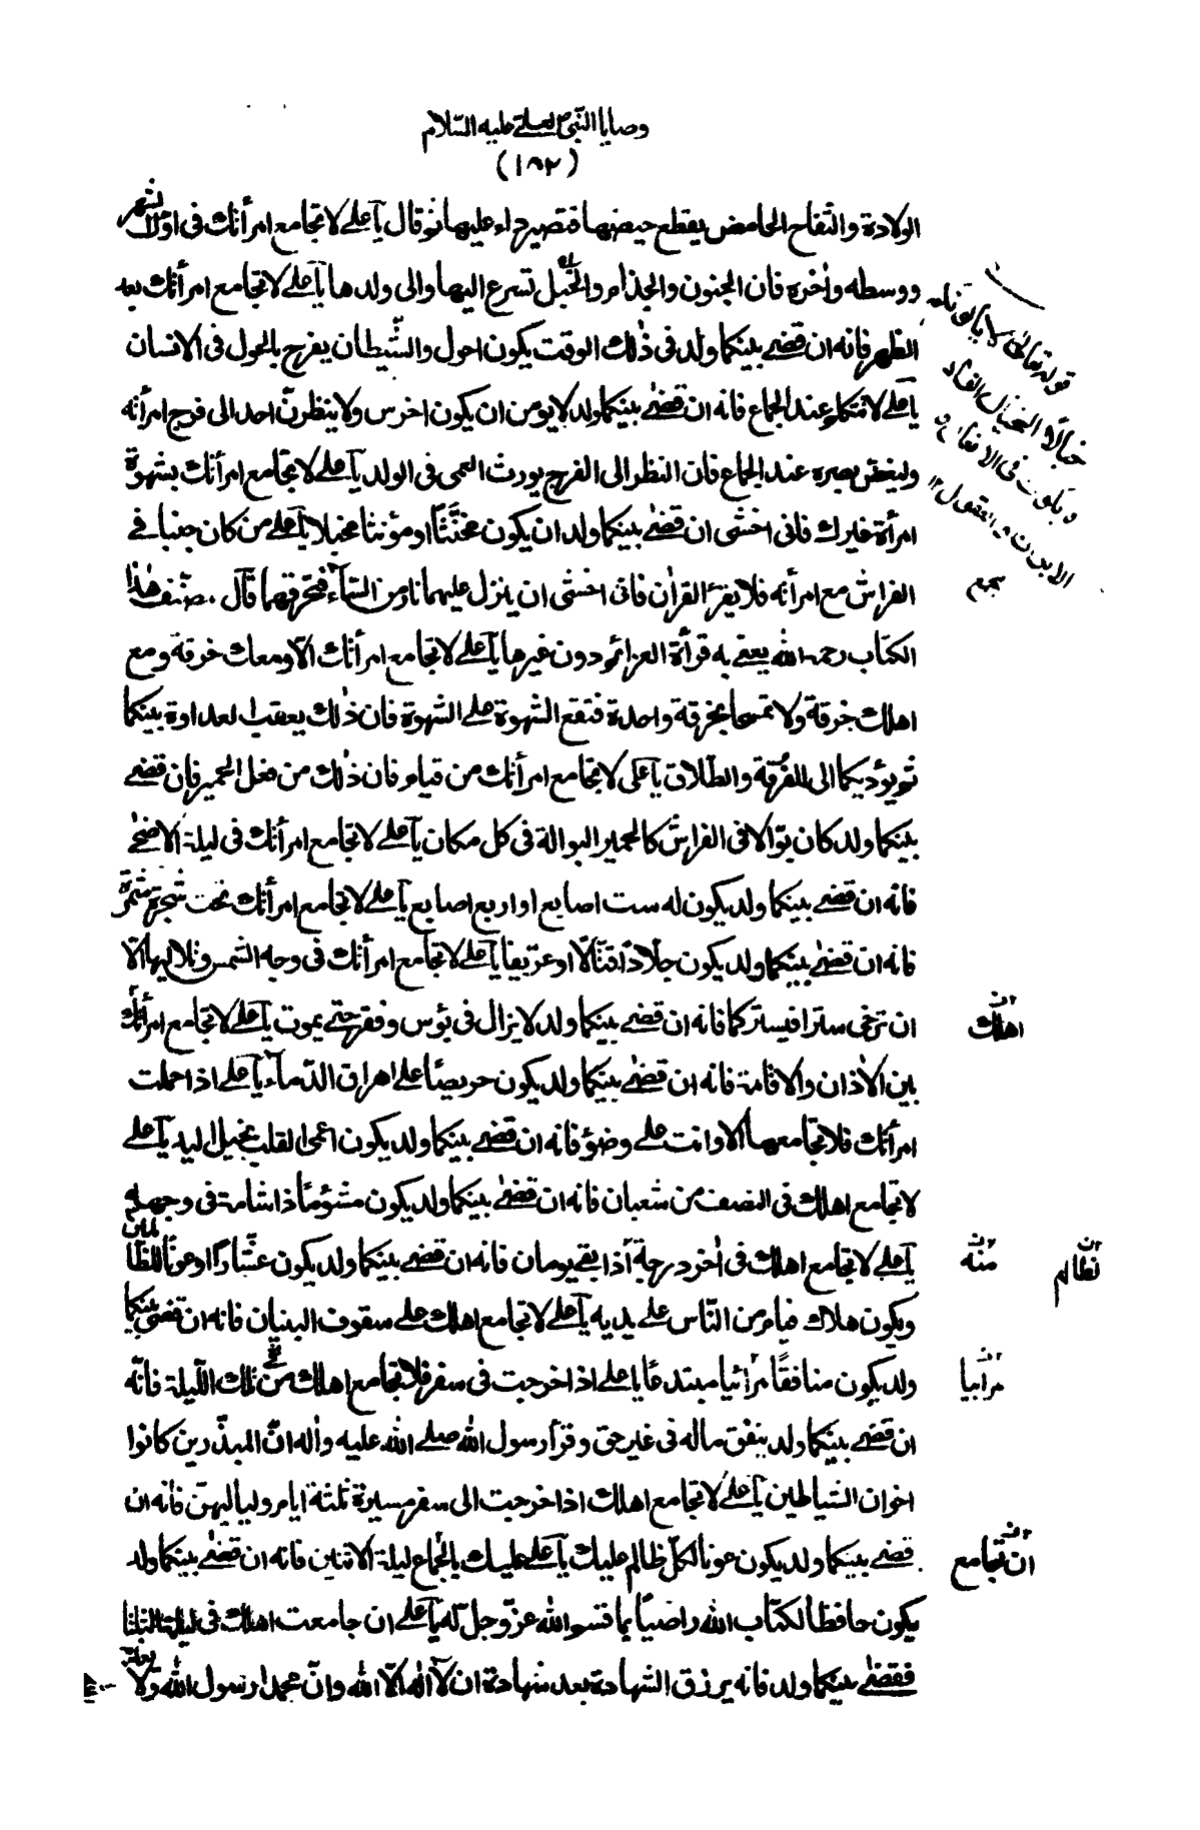 وصايا النّبى لعلے عليه السّلام
(١٨٢)
الولادة والتفاح الحامض يقطع حيضها فتصير داء عليها ثم قال يا علے لا تجامع امرأتك فى اوّل الشهر
ووسطه واٰخره فان الجنون والجذام والخبل تسرع اليها والى ولدها يا علے لا تجامع امرأتك بعد
الظهر فانه ان قضے بينكما ولد فى ذٰلك الوقت يكون احول والشّيطان يفرح بالحول فى الانسان
يا علے لا تتكلم عند الجماع فانه ان قضٰے بينكما ولد لا يؤمن ان يكون اخرس ولا ينظرنّ احد الى فرج امرأته
وليغض بصره عند الجماع فان النظر الى الفرج يورث العمى فى الولد يا علے لا تجامع امرأتك بشهوة
امرأة غيرك فانى اخشى ان قضٰے بينكما ولد ان يكون مخنّثًا او مؤنثا مخبلا يا علے من كان جنبا فے
الفراش مع امرأته فلا يقرء القراٰن فانى اخشى ان ينزل عليهما نار من السّمآء فتحرقهما قال مصنّف هٰذا
الكتاب رحمه الله يعنے به قرأة العزائم دون غيرها يا علے لا تجامع امرأتك الّا ومعك خرقة ومع
اهلك خرقة ولا تمسحا بخرقة واحدة فتقع الشهوة علے الشهوة فان ذٰلك يعقب العداوة بينكما
ثم يؤديكما الى الفرقة والطلاق يا على لا تجامع امرأتك من قيام فان ذٰلك من فعل الحمير فان قضے
بينكما ولد كان بوّالا فى الفراش كالحمير البوالة فى كل مكان يا علے لا تجامع امرأتك فى ليلة الاضحٰے
فانه ان قضے بينكما ولد يكون له ست اصابع او اربع اصابع يا علے لا تجامع امرأتك تحت شجرة مثمرة
فانه ان قضٰے بينكما ولد يكون جلّادًا قتّالًا او عرّيفا يا علے لا تجامع امرأتك فى وجه الشمس وتلاليها الّا
ان ترخى سترا فيستركما فانه ان قضے بينكما ولد لا يزال فى بؤس وفقر حتے يموت يا علے لا تجامع امرأتك
اهلك
بين الاذان والاقامة فانه ان قضٰے بينكما ولد يكون حريصًا على اهراق الدّماء يا علے اذا حملت
امرأتك فلا تجامعها الا وانت علے وضوٓ فانه ان قضے بينكما ولد يكون اعمى القلب بخيل اليد يا علے
لا تجامع اهلك فى النصف من شعبان فانه ان قضےٰ بينكما ولد يكون مشؤمًا ذا شامة فى وجهه
يا علے لا تجامع اهلك فى اٰخر درجة اذا بقے يومان فانه ان قضے بينكما ولد يكون عشّارًا او عونًا للظالمين
منه
لظالم
ويكون هلاك فئام من النّاس علے يديه يا علے لا تجامع اهلك علے سقوف البنيان فانه ان قضے بينكما
ولد يكون منافقًا مرٰائيا مبتدعًا يا علے اذا خرجت فى سفر فلا تجامع اهلك من تلك الليلة فانّه
مرابيا
ان قضے بينكما ولد ينفق ماله فى غير حق وقرأ رسول الله صلے الله عليه واٰله انّ المبذّرين كانوا
اخوان الشياطين يا علے لا تجامع اهلك اذا خرجت الى سفر مسيرة ثلثة ايام ولياليهنّ فانه ان
قضے بينكما ولد يكون عونا لكلّ ظالم عليك يا علے عليك بالجماع ليلة الاثنين فانه ان قضٰے بينكما ولد
ان تجامع
يكون حافظا لكتاب الله راضيًا بما قسم الله عزّ وجل له يا علے ان جامعت اهلك فى ليلة الثلثا
فقضٰے بينكما ولد فانه يرزق الشهادة بعد شهادة ان لا اله الّا الله وانّ محمدا رسول الله ولا
قوله تعالى لا يألونكم
خبالًا والخبال الفساد
ويكون فى الافعال و
الابدان والعقول ١٢
مجمع